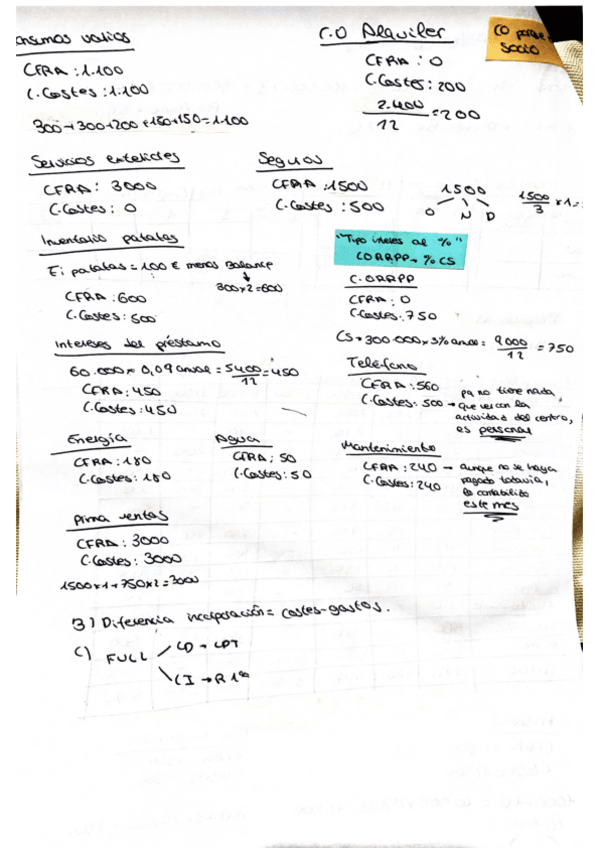 Consumos varios
CFRA : 1.100
C.Costes : 1.100
300+300+200+150+150=1.100
C.O Alquiler
CFRA : 0
C.Costes : 200
2.400/12 = 200
CO porque
socio
Servicios exteriores
CFRA : 3000
C.Costes : 0
Seguros
CFRA : 1500
C.Costes : 500
1500
O N D
1500/3 × 1 =
Inventario patatas
Ei patatas = 100 € menos Balance
300×2=600
CFRA : 600
C.Costes : 500
"Tipo interes al %"
CORRPP → % CS
C.ORRPP
CFRA : 0
C.Costes : 750
CS → 300.000 × 3% anual = 9000/12 = 750
Intereses del préstamo
60.000 × 0,09 anual = 5400/12 = 450
CFRA : 450
C.Costes : 450
Teléfono
CFRA : 560
C.Costes : 500 → que ver con la
actividad del centro,
es personal
Energía
CFRA : 180
C.Costes : 180
Agua
CFRA : 50
C.Costes : 50
Mantenimiento
CFRA : 240 → aunque no se haya
pagado todavía,
lo contabilizo
este mes
C.Costes : 240
Prima ventas
CFRA : 3000
C.Costes : 3000
1500×1+750×2=3000
3) Diferencia incorporación = costes-gastos.
C) FULL
CD → CPT
CI → R 1ª